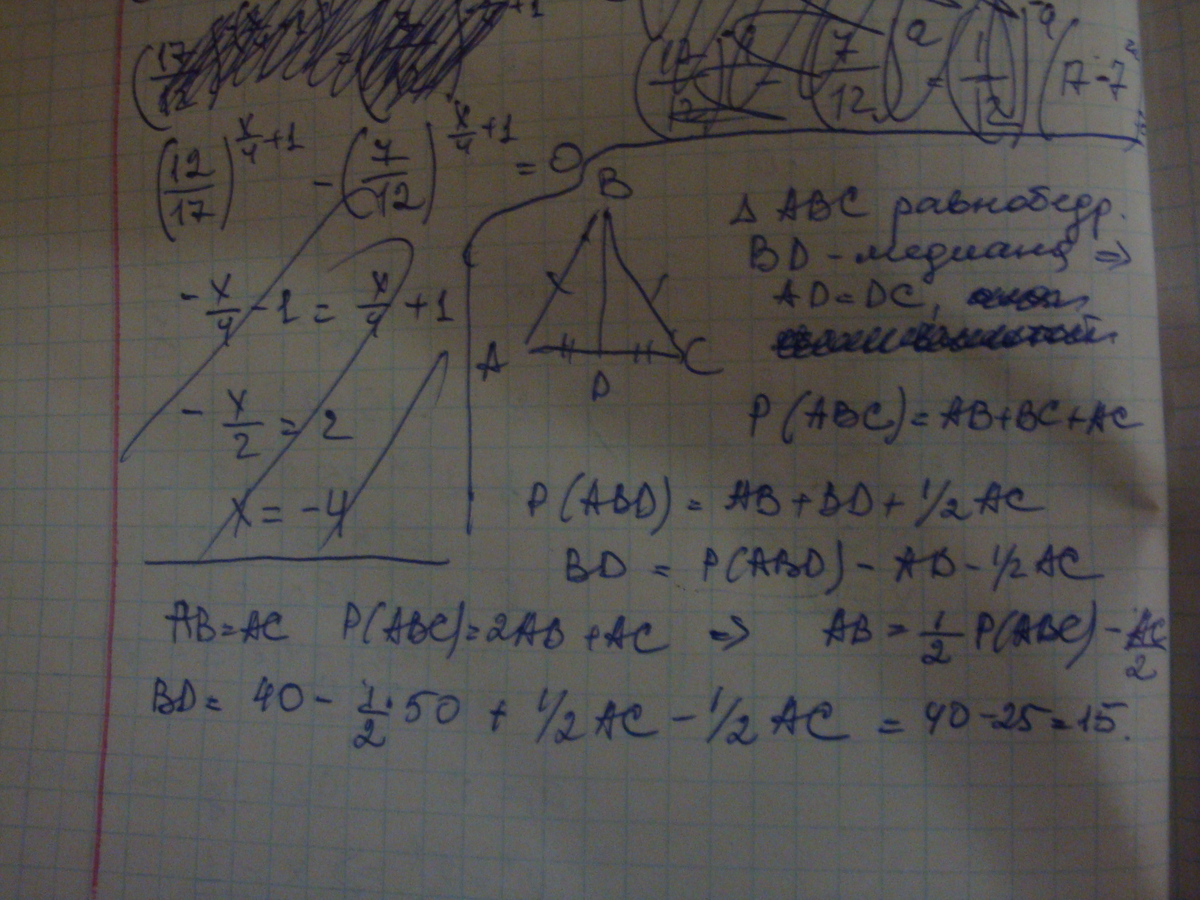 (12/17)^(x/4+1) - (7/12)^(x/4+1) = 0
-x/4 - 1 = x/4 + 1
-x/2 = 2
x = -4
B
A
D
C
Δ ABC равнобедр.
BD - медиана ⇒
AD = DC,
P(ABC) = AB+BC+AC
P(ABD) = AB + BD + 1/2 AC
BD = P(ABD) - AB - 1/2 AC
AB = AC P(ABC) = 2AB + AC ⇒ AB = 1/2 P(ABC) - AC/2
BD = 40 - 1/2 · 50 + 1/2 AC - 1/2 AC = 40 - 25 = 15.